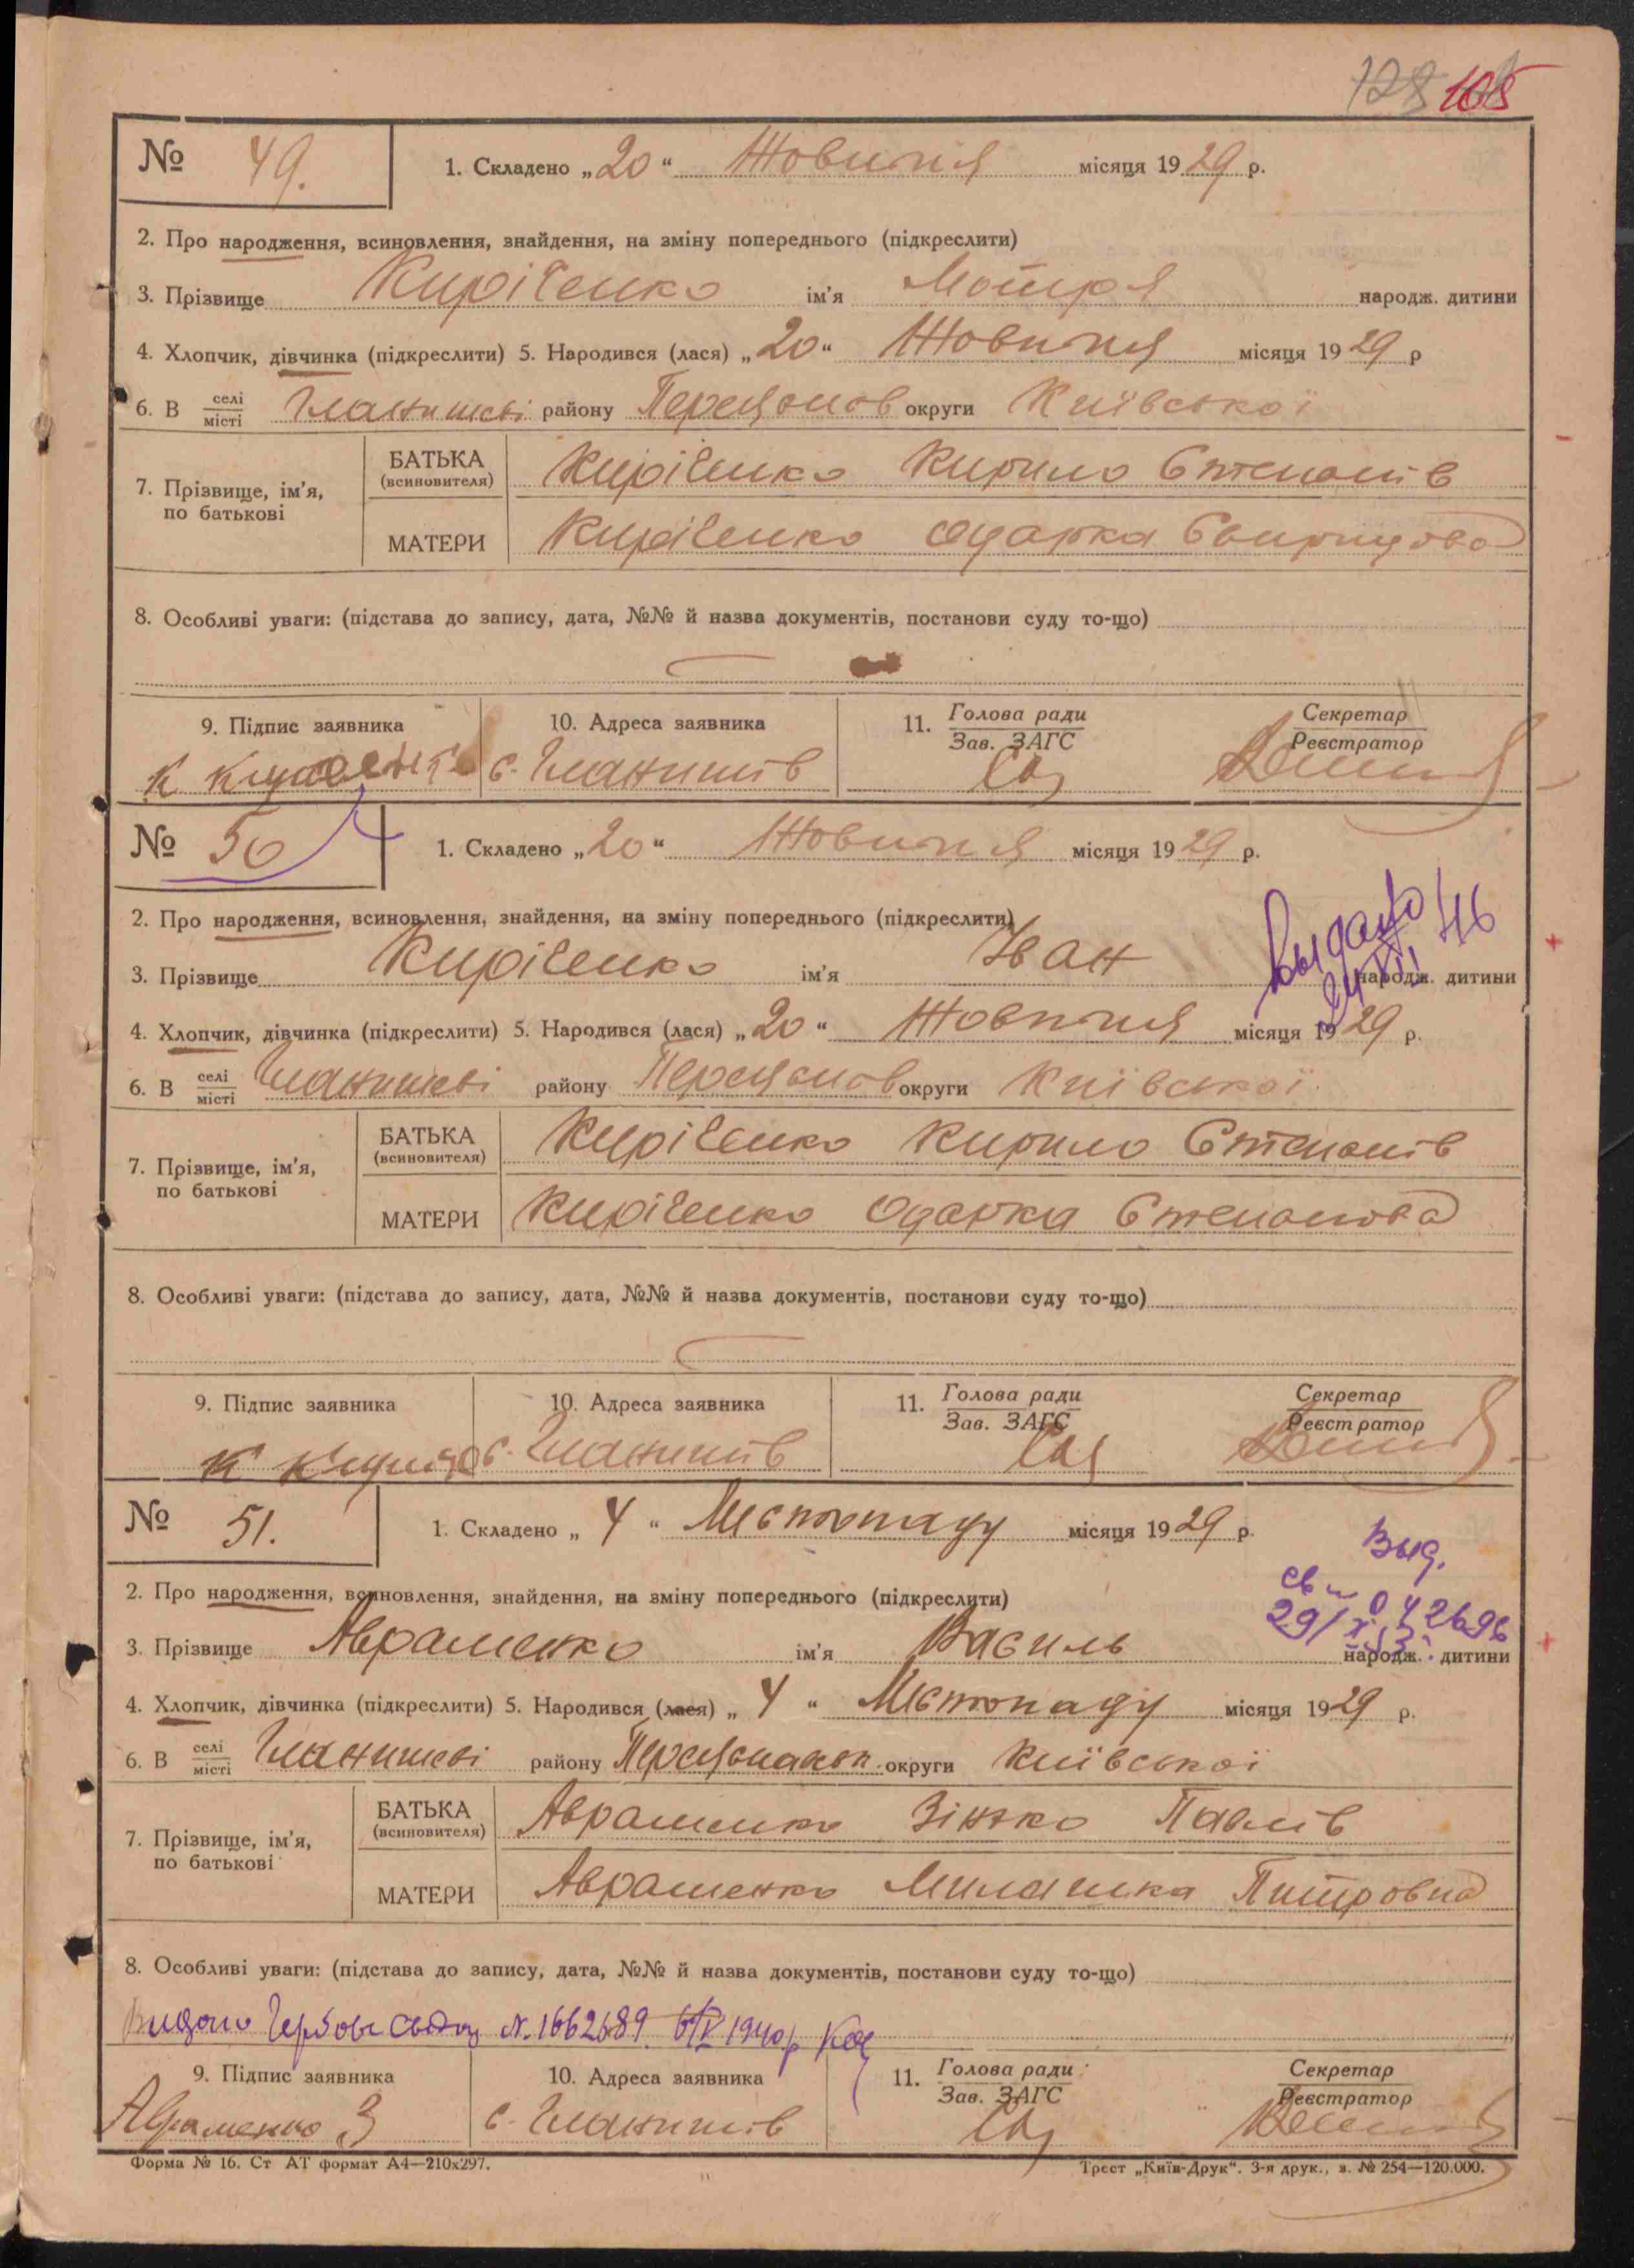 105
№ 49. 1. Складено „20“ Жовтня місяця 1929 р.
2. Про народження, всиновлення, знайдення, на зміну попереднього (підкреслити)
3. Прізвище Киріченко ім’я Мотря народж. дитини
4. Хлопчик, дівчинка (підкреслити) 5. Народився (лася) „20“ Жовтня місяця 1929 р
6. В селі/місті Гланишеві району Переяслов округи Київської
7. Прізвище, ім’я, по батькові
БАТЬКА (всиновителя) Киріченко Кирило Степанів
МАТЕРИ Киріченко Одарка
8. Особливі уваги: (підстава до запису, дата, №№ й назва документів, постанови суду то-що)
9. Підпис заявника 10. Адреса заявника 11. Голова ради/Зав. ЗАГС Секретар/Реєстратор
с. Гланишів
№ 50 1. Складено „20“ Жовтня місяця 1929 р.
2. Про народження, всиновлення, знайдення, на зміну попереднього (підкреслити)
Выдано 46
3. Прізвище Киріченко ім’я Іван народж. дитини
4. Хлопчик, дівчинка (підкреслити) 5. Народився (лася) „20“ Жовтня місяця 1929 р.
6. В селі/місті Гланишеві району Переяслов округи Київської
7. Прізвище, ім’я, по батькові
БАТЬКА (всиновителя) Киріченко Кирило Степанів
МАТЕРИ Киріченко Одарка Степанова
8. Особливі уваги: (підстава до запису, дата, №№ й назва документів, постанови суду то-що)
9. Підпис заявника 10. Адреса заявника 11. Голова ради/Зав. ЗАГС Секретар/Реєстратор
с. Гланишів
№ 51. 1. Складено „4“ Листопаду місяця 1929 р.
Выд.
2. Про народження, всиновлення, знайдення, на зміну попереднього (підкреслити)
3. Прізвище Авраменко ім’я Василь народж. дитини
4. Хлопчик, дівчинка (підкреслити) 5. Народився (лася) „4“ Листопаду місяця 1929 р.
6. В селі/місті Гланишеві району округи Київської
7. Прізвище, ім’я, по батькові
БАТЬКА (всиновителя) Авраменко Зінько Павлів
МАТЕРИ Авраменко Милашка Питровна
8. Особливі уваги: (підстава до запису, дата, №№ й назва документів, постанови суду то-що)
Видано N. 1662689 1940р
9. Підпис заявника 10. Адреса заявника 11. Голова ради/Зав. ЗАГС Секретар/Реєстратор
Авраменко З с. Гланишів
Форма № 16. Ст АТ формат А4—210х297. Трест „Київ-Друк“. 3-я друк., з. № 254—120.000.